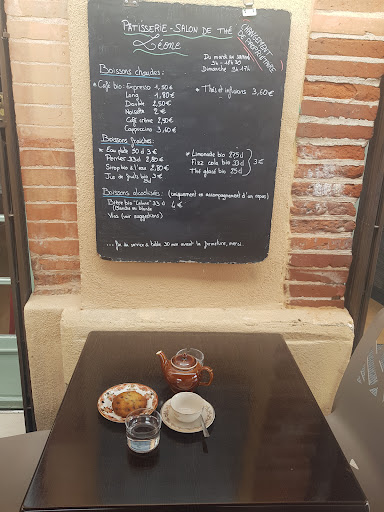 PATISSERIE - SALON DE THÉ
Léone
CHANGEMENT
DE PROPRIÉTAIRE
Du mardi au samedi
9h - 17h30
Dimanche 9h 17h
Boissons chaudes :
* Café bio : Expresso 1,50€
Long 1,80€
Double 2,50€
Noisette 2€
Café crème 2,80€
Cappuccino 3,60€
* Thés et infusions 3,60€
Boissons fraîches :
* Eau plate 50 cl 3€
Perrier 33cl 2,80€
Sirop bio à l'eau 2,80€
Jus de fruits bio 3€
* Limonade bio 27,5cl
Fizz cola bio 33cl
Thé glacé bio 25cl
3€
Boissons alcoolisées : (uniquement en accompagnement d'un repas)
Bière bio 33cl 4€
(Blanche ou blonde
Vins (voir suggestions)
... fin du service à table 30 min avant la fermeture, merci.